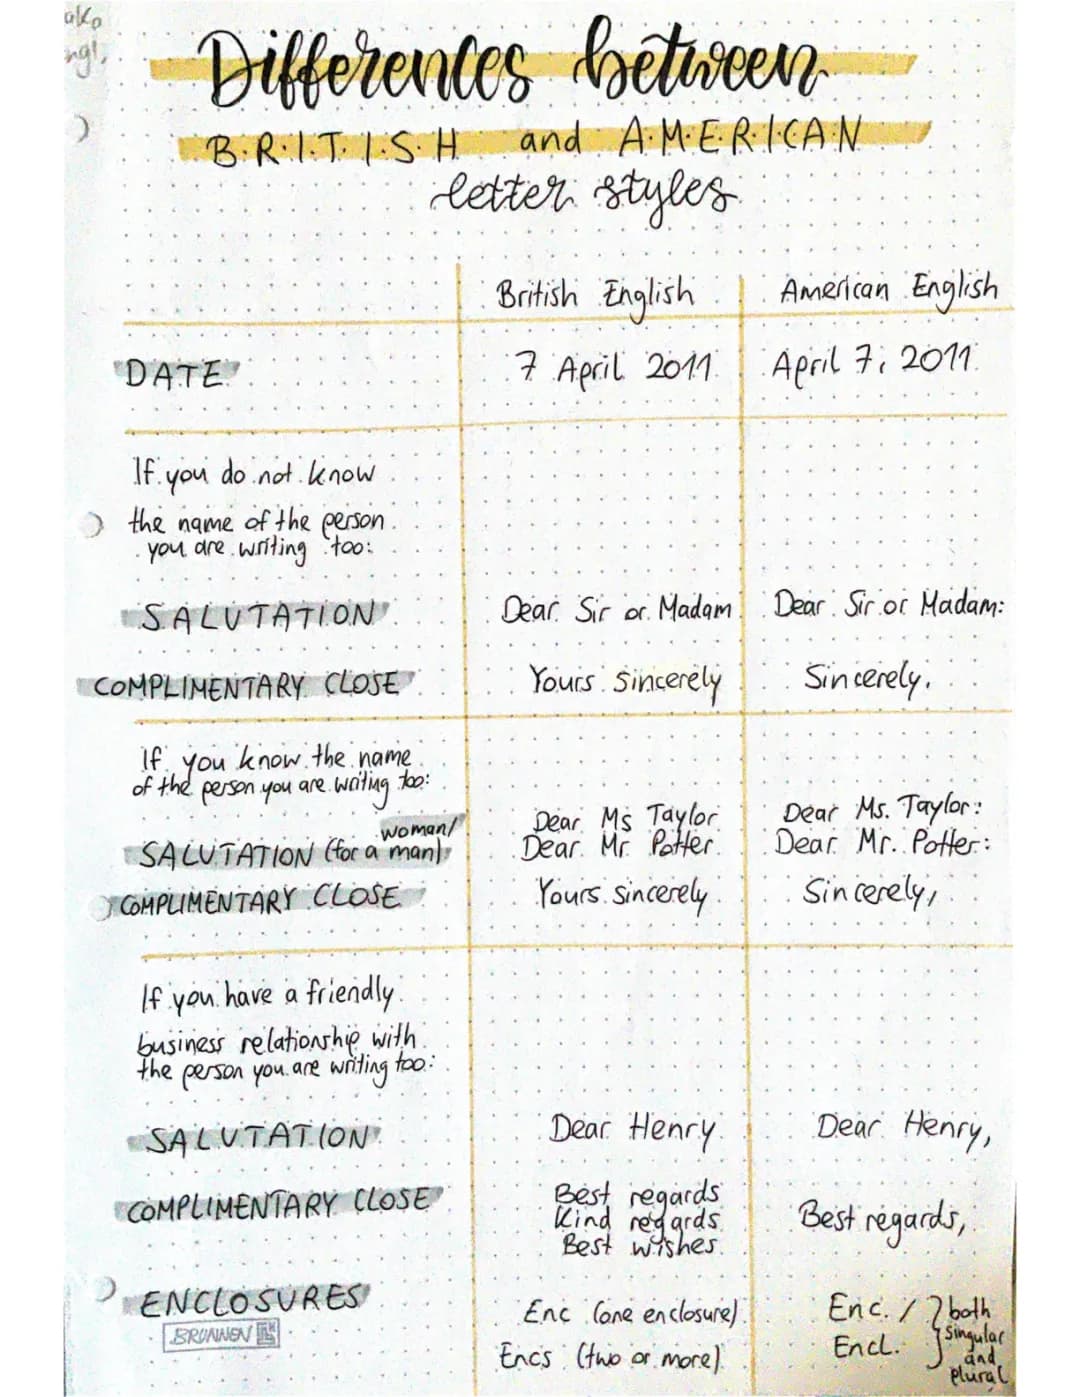 Differences between
BRITISH and AMERICAN
letter styles
British English American English
DATE 7 April 2011 April 7, 2011
If you do not know
the name of the person
you are writing too:
SALUTATION Dear Sir or Madam Dear Sir or Madam:
COMPLIMENTARY CLOSE Yours sincerely Sincerely,
If you know the name
of the person you are writing too:
woman/ Dear Ms Taylor Dear Ms. Taylor:
SALUTATION (for a man): Dear Mr Potter Dear Mr. Potter:
COMPLIMENTARY CLOSE Yours sincerely Sincerely,
If you have a friendly
business relationship with
the person you are writing too:
SALUTATION Dear Henry Dear Henry,
COMPLIMENTARY CLOSE Best regards Best regards,
Kind regards
Best wishes
ENCLOSURES Enc (one enclosure) Enc. / } both
Encs (two or more) Encl. singular
and
plural
BRUNNEN